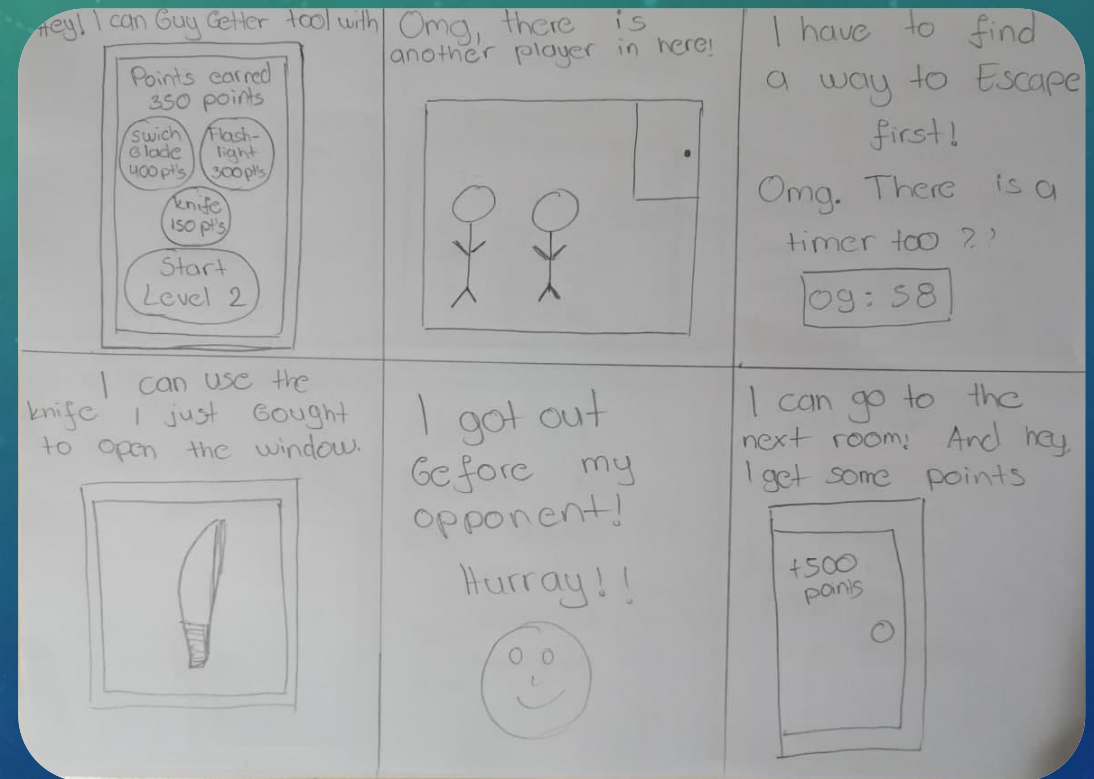 Hey! I can buy better tool with
Points earned
350 points
swich
blade
400pt's
Flash-
light
300pt's
knife
150 pt's
Start
Level 2
Omg, there is
another player in here!
I have to find
a way to Escape
first!
Omg. There is a
timer too ??
09:58
I can use the
knife I just bought
to open the window.
I got out
before my
opponent!
Hurray!!
I can go to the
next room! And hey,
I get some points
+500
points